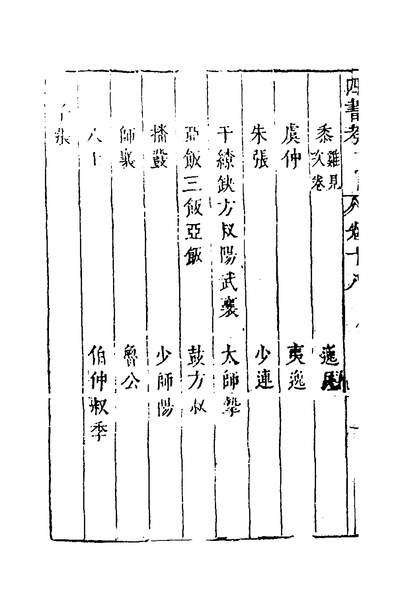 四書考 卷十八
黍 雞見次卷 逸民
虞仲 夷逸
朱張 少連
干繚缺方叔陽武襄 太師摯
亞飯三飯亞飯 鼓方叔
播鼗 少師陽
師襄 魯公
八士 伯仲叔季
子張